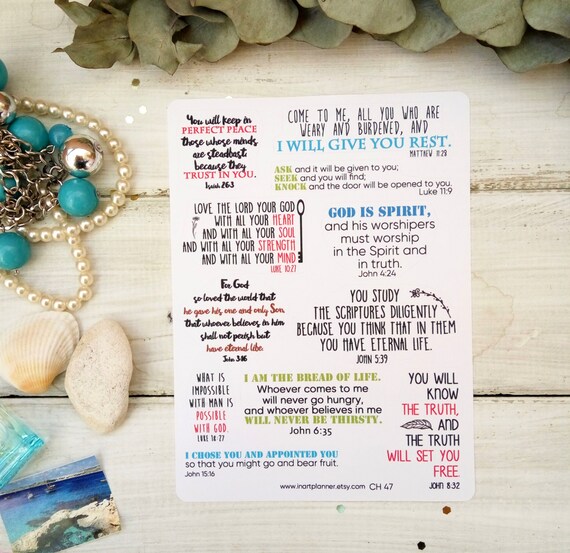 You will keep in
PERFECT PEACE
those whose minds
are steadfast,
because they
TRUST IN YOU.
Isaiah 26:3
COME TO ME, ALL YOU WHO ARE
WEARY AND BURDENED, AND
I WILL GIVE YOU REST.
MATTHEW 11:28
ASK and it will be given to you;
SEEK and you will find;
KNOCK and the door will be opened to you.
Luke 11:9
LOVE THE LORD YOUR GOD
WITH ALL YOUR HEART
AND WITH ALL YOUR SOUL
AND WITH ALL YOUR STRENGTH
AND WITH ALL YOUR MIND
LUKE 10:27
GOD IS SPIRIT,
and his worshipers
must worship
in the Spirit and
in truth.
John 4:24
For God
so loved the world that
he gave his one and only Son,
that whoever believes in him
shall not perish but
have eternal life.
John 3:16
YOU STUDY
THE SCRIPTURES DILIGENTLY
BECAUSE YOU THINK THAT IN THEM
YOU HAVE ETERNAL LIFE.
JOHN 5:39
WHAT IS
IMPOSSIBLE
WITH MAN IS
POSSIBLE
WITH GOD.
LUKE 18:27
I AM THE BREAD OF LIFE.
Whoever comes to me
will never go hungry,
and whoever believes in me
WILL NEVER BE THIRSTY.
John 6:35
YOU WILL
KNOW
THE TRUTH,
AND
THE TRUTH
WILL SET YOU
FREE.
JOHN 8:32
I CHOSE YOU AND APPOINTED YOU
so that you might go and bear fruit.
John 15:16
www.inartplanner.etsy.com CH 47